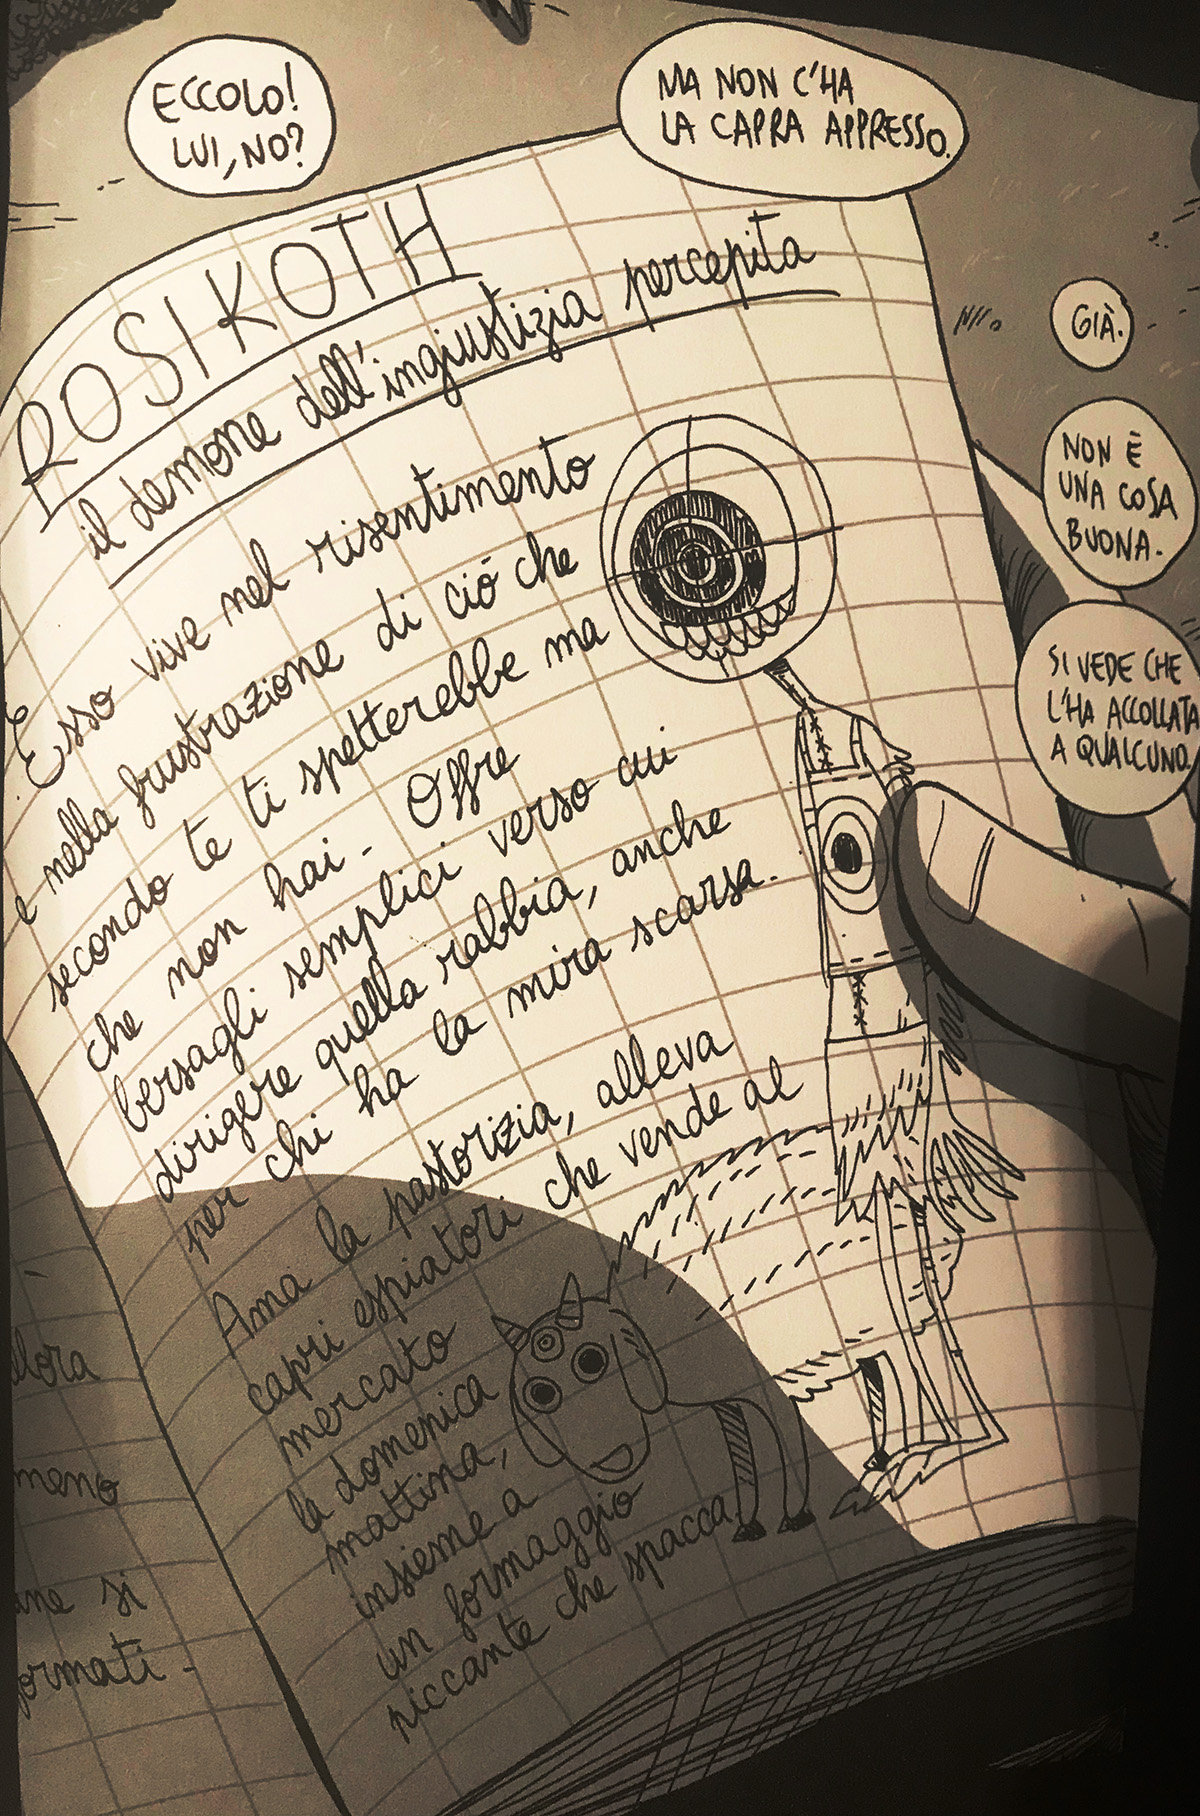 ECCOLO!
LUI, NO?
MA NON C'HA
LA CAPRA APPRESSO.
GIÀ.
NON È
UNA COSA
BUONA.
SI VEDE CHE
L'HA ACCOLLATA
A QUALCUNO.
ROSIKOTH
il demone dell'ingiustizia percepita
Esso vive nel risentimento
e nella frustrazione di ciò che
secondo te ti spetterebbe ma
che non hai. Offre
bersagli semplici verso cui
dirigere quella rabbia, anche
per chi ha la mira scarsa.
Ama la pastorizia, alleva
capri espiatori che vende al
mercato
la domenica
mattina,
insieme a
un formaggio
piccante che spacca.
meno
si